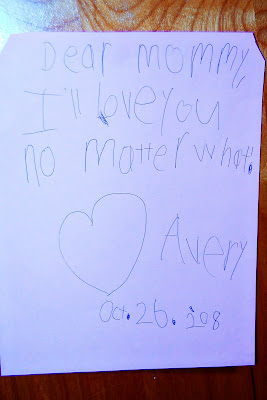 Dear mommy,
I'll love you
no matter what!
Avery
Oct. 26. 208